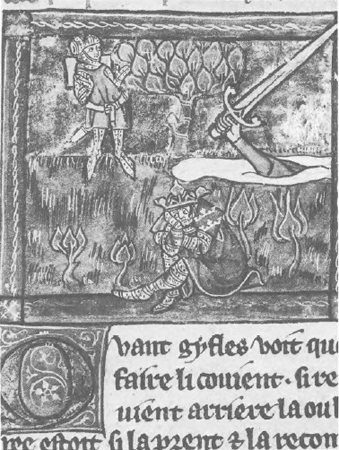 Quant gyfles voit que
faire li couient · si re
uient arriere la oul
estoit si la prent & la recon